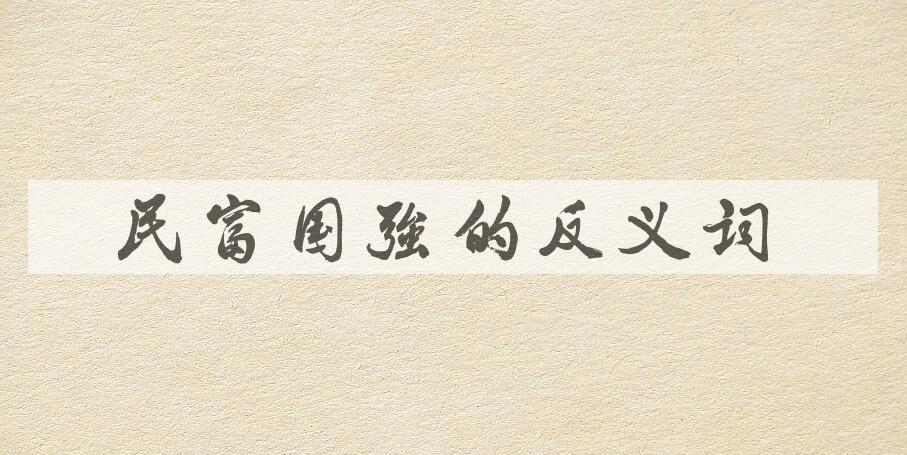 民富国強的反义词